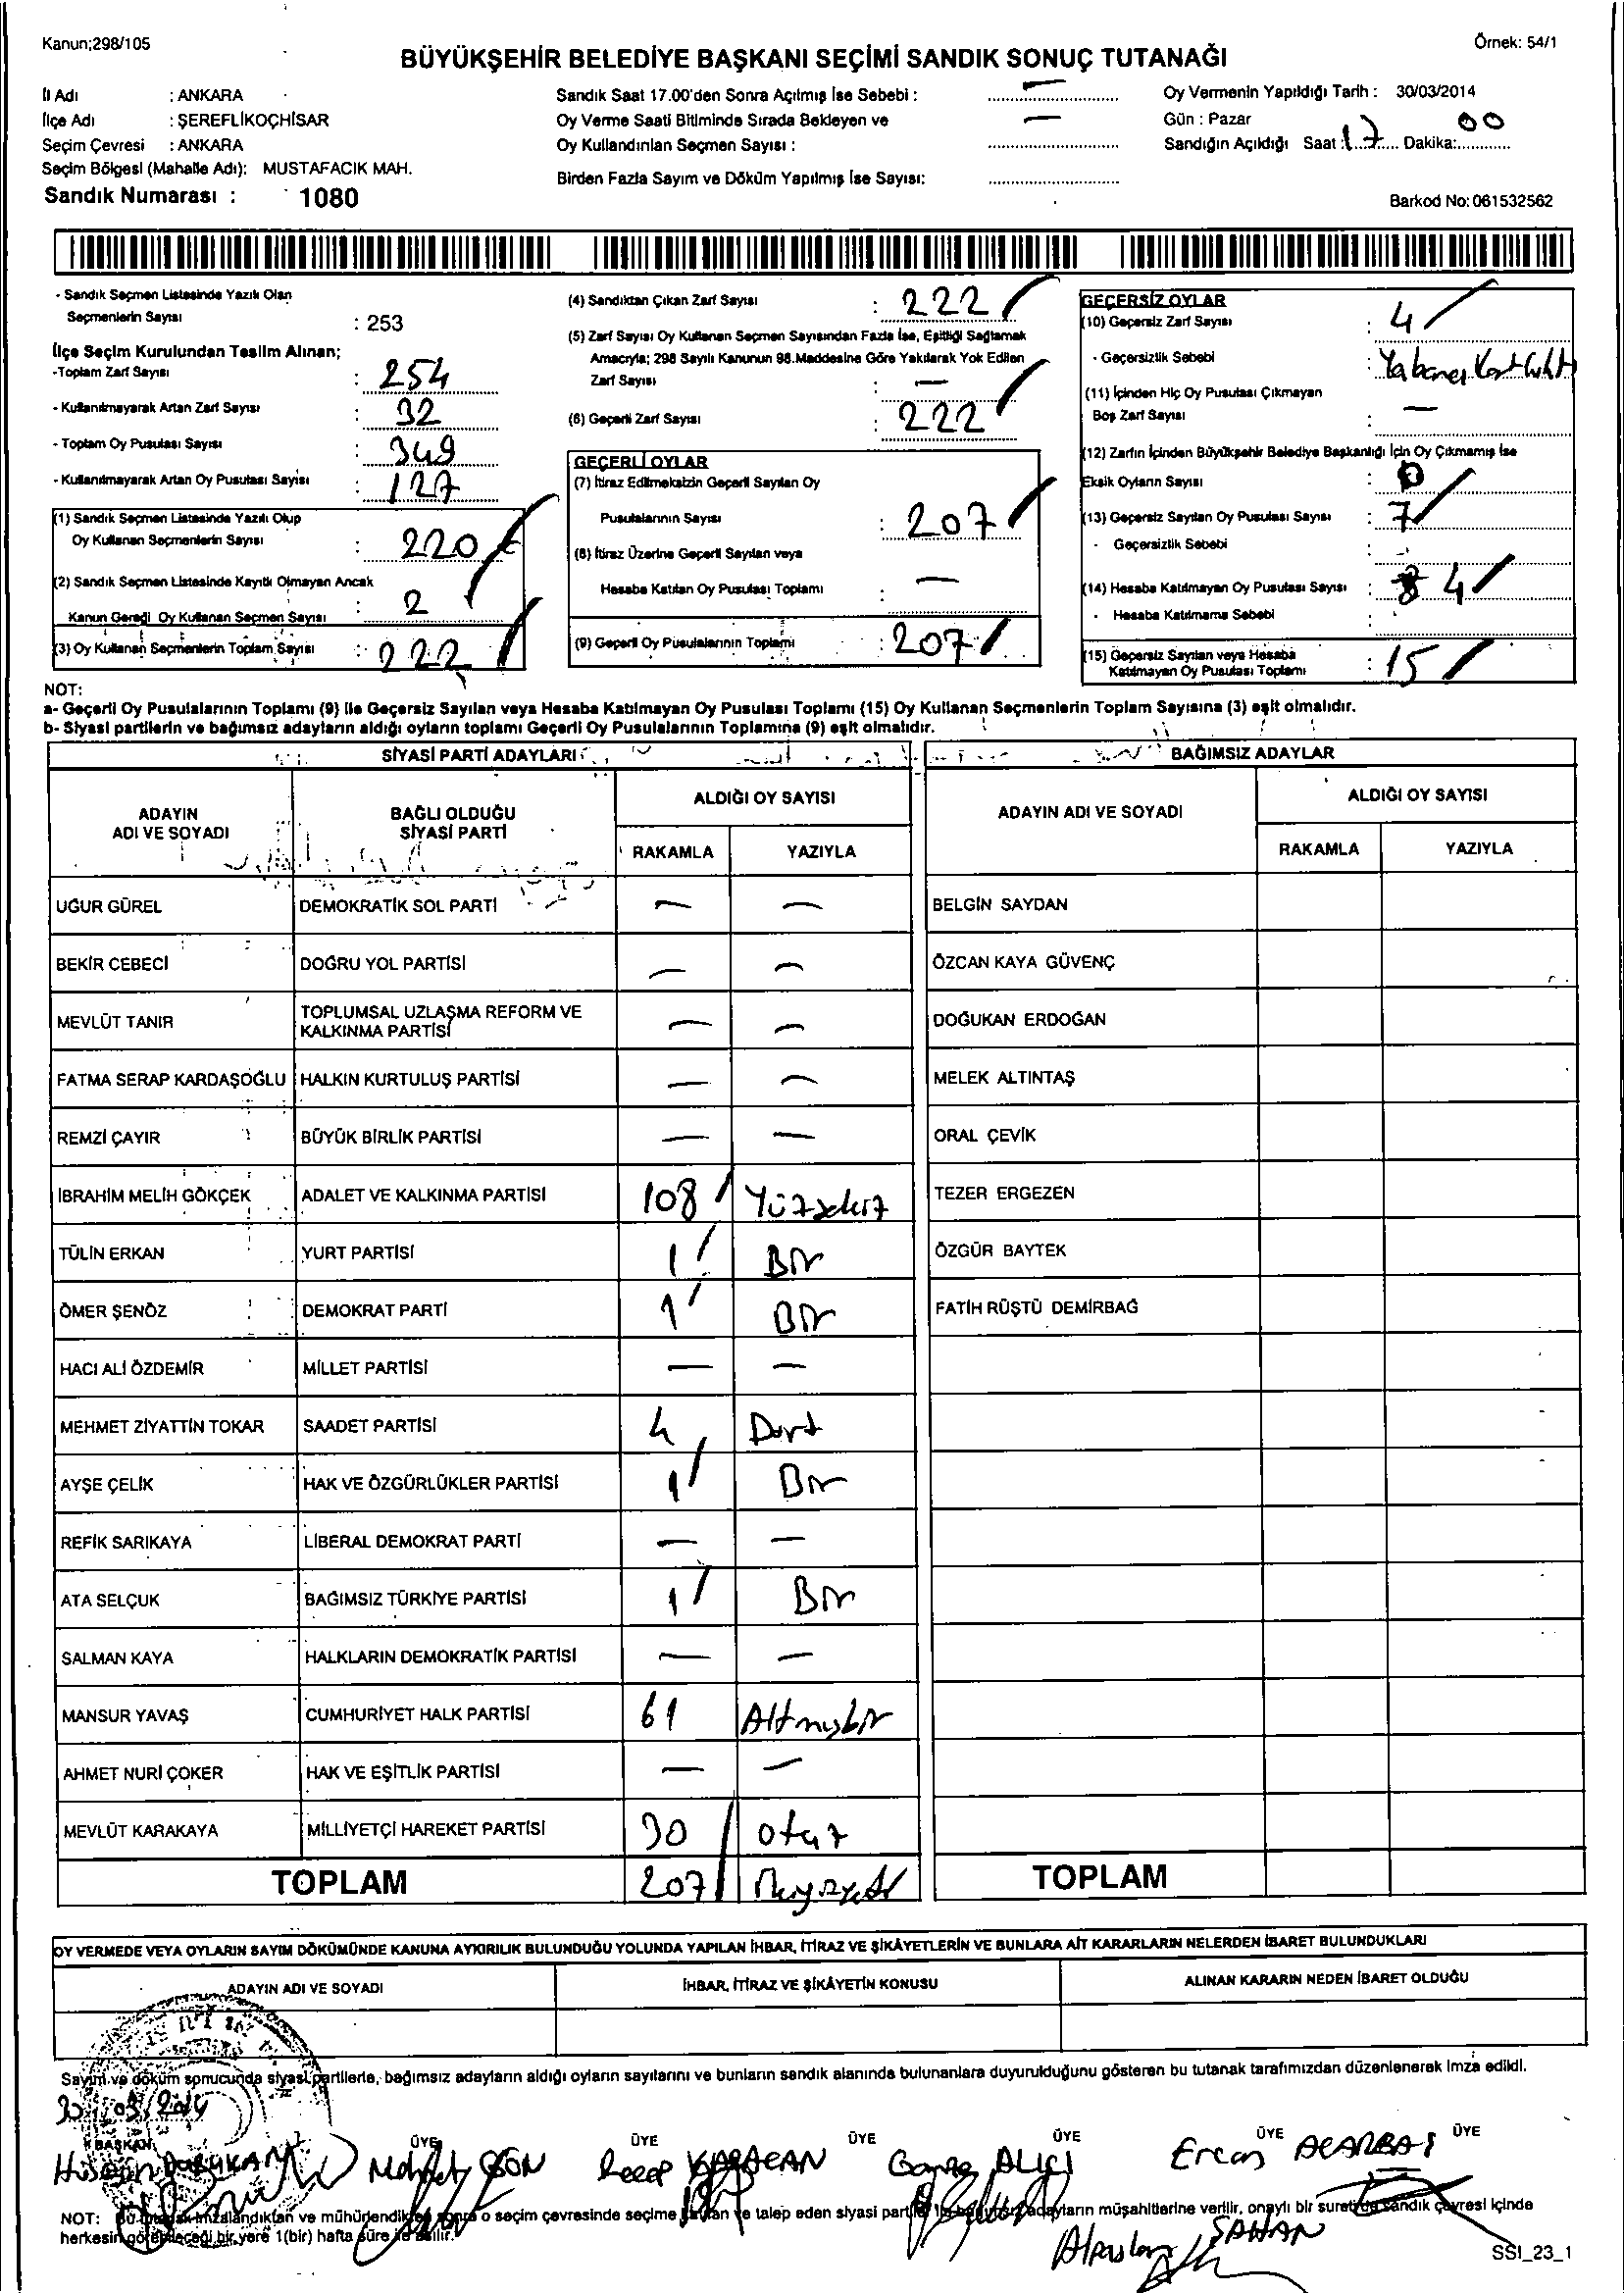 Kanun;298/105
Örnek: 54/1
BÜYÜKŞEHİR BELEDİYE BAŞKANI SEÇİMİ SANDIK SONUÇ TUTANAĞI
İl Adı : ANKARA
İlçe Adı : ŞEREFLİKOÇHİSAR
Seçim Çevresi : ANKARA
Seçim Bölgesi (Mahalle Adı): MUSTAFACIK MAH.
Sandık Numarası : 1080
Sandık Saat 17.00'den Sonra Açılmış İse Sebebi : —
Oy Verme Saati Bitiminde Sırada Bekleyen ve —
Oy Kullandırılan Seçmen Sayısı :
Birden Fazla Sayım ve Döküm Yapılmış İse Sayısı:
Oy Vermenin Yapıldığı Tarih : 30/03/2014
Gün : Pazar
Sandığın Açıldığı Saat : 17 Dakika: 00
Barkod No: 061532562
- Sandık Seçmen Listesinde Yazılı Olan
Seçmenlerin Sayısı : 253
İlçe Seçim Kurulundan Teslim Alınan;
-Toplam Zarf Sayısı : 254
- Kullanılmayarak Artan Zarf Sayısı : 32
- Toplam Oy Pusulası Sayısı : 349
- Kullanılmayarak Artan Oy Pusulası Sayısı : 127
(1) Sandık Seçmen Listesinde Yazılı Olup
Oy Kullanan Seçmenlerin Sayısı : 220
(2) Sandık Seçmen Listesinde Kayıtlı Olmayan Ancak
Kanun Gereği Oy Kullanan Seçmen Sayısı : 2
(3) Oy Kullanan Seçmenlerin Toplam Sayısı : 222
(4) Sandıktan Çıkan Zarf Sayısı : 222
(5) Zarf Sayısı Oy Kullanan Seçmen Sayısından Fazla İse, Eşitliği Sağlamak
Amacıyla; 298 Sayılı Kanunun 98.Maddesine Göre Yakılarak Yok Edilen
Zarf Sayısı : —
(6) Geçerli Zarf Sayısı : 222
GEÇERLİ OYLAR
(7) İtiraz Edilmeksizin Geçerli Sayılan Oy
Pusulalarının Sayısı : 207
(8) İtiraz Üzerine Geçerli Sayılan veya
Hesaba Katılan Oy Pusulası Toplamı : —
(9) Geçerli Oy Pusulalarının Toplamı : 207
GEÇERSİZ OYLAR
(10) Geçersiz Zarf Sayısı : 4
- Geçersizlik Sebebi :
(11) İçinden Hiç Oy Pusulası Çıkmayan
Boş Zarf Sayısı : —
(12) Zarfın İçinden Büyükşehir Belediye Başkanlığı İçin Oy Çıkmamış İse
Eksik Oyların Sayısı : 0
(13) Geçersiz Sayılan Oy Pusulası Sayısı : 7
- Geçersizlik Sebebi :
(14) Hesaba Katılmayan Oy Pusulası Sayısı : 4
- Hesaba Katılmama Sebebi :
(15) Geçersiz Sayılan veya Hesaba
Katılmayan Oy Pusulası Toplamı : 15
NOT:
a- Geçerli Oy Pusulalarının Toplamı (9) ile Geçersiz Sayılan veya Hesaba Katılmayan Oy Pusulası Toplamı (15) Oy Kullanan Seçmenlerin Toplam Sayısına (3) eşit olmalıdır.
b- Siyasi partilerin ve bağımsız adayların aldığı oyların toplamı Geçerli Oy Pusulalarının Toplamına (9) eşit olmalıdır.
SİYASİ PARTİ ADAYLARI
ADAYIN ADI VE SOYADI BAĞLI OLDUĞU SİYASİ PARTİ ALDIĞI OY SAYISI
RAKAMLA YAZIYLA
UĞUR GÜREL DEMOKRATİK SOL PARTİ — —
BEKİR CEBECİ DOĞRU YOL PARTİSİ — —
MEVLÜT TANIR TOPLUMSAL UZLAŞMA REFORM VE KALKINMA PARTİSİ — —
FATMA SERAP KARDAŞOĞLU HALKIN KURTULUŞ PARTİSİ — —
REMZİ ÇAYIR BÜYÜK BİRLİK PARTİSİ — —
İBRAHİM MELİH GÖKÇEK ADALET VE KALKINMA PARTİSİ 108 Yüzsekiz
TÜLİN ERKAN YURT PARTİSİ 1 Bir
ÖMER ŞENÖZ DEMOKRAT PARTİ 1 Bir
HACI ALİ ÖZDEMİR MİLLET PARTİSİ — —
MEHMET ZİYATTİN TOKAR SAADET PARTİSİ 4 Dört
AYŞE ÇELİK HAK VE ÖZGÜRLÜKLER PARTİSİ 1 Bir
REFİK SARIKAYA LİBERAL DEMOKRAT PARTİ — —
ATA SELÇUK BAĞIMSIZ TÜRKİYE PARTİSİ 1 Bir
SALMAN KAYA HALKLARIN DEMOKRATİK PARTİSİ — —
MANSUR YAVAŞ CUMHURİYET HALK PARTİSİ 61 Altmışbir
AHMET NURİ ÇOKER HAK VE EŞİTLİK PARTİSİ — —
MEVLÜT KARAKAYA MİLLİYETÇİ HAREKET PARTİSİ 30 otuz
TOPLAM 207
BAĞIMSIZ ADAYLAR
ADAYIN ADI VE SOYADI ALDIĞI OY SAYISI
RAKAMLA YAZIYLA
BELGİN SAYDAN
ÖZCAN KAYA GÜVENÇ
DOĞUKAN ERDOĞAN
MELEK ALTINTAŞ
ORAL ÇEVİK
TEZER ERGEZEN
ÖZGÜR BAYTEK
FATİH RÜŞTÜ DEMİRBAĞ
TOPLAM
OY VERMEDE VEYA OYLARIN SAYIM DÖKÜMÜNDE KANUNA AYKIRILIK BULUNDUĞU YOLUNDA YAPILAN İHBAR, İTİRAZ VE ŞİKÂYETLERİN VE BUNLARA AİT KARARLARIN NELERDEN İBARET BULUNDUKLARI
ADAYIN ADI VE SOYADI İHBAR, İTİRAZ VE ŞİKÂYETİN KONUSU ALINAN KARARIN NEDEN İBARET OLDUĞU
Sayım ve döküm sonucunda siyasi partilerle, bağımsız adayların aldığı oyların sayılarını ve bunların sandık alanında bulunanlara duyurulduğunu gösteren bu tutanak tarafımızdan düzenlenerek imza edildi.
30/03/2014
BAŞKAN ÜYE ÜYE ÜYE ÜYE ÜYE ÜYE
Hüseyin Mehmet Recep KARACAN ALICI Ercan ACARBAŞ
NOT: Bu tutanak imzalandıktan ve mühürlendikten sonra o seçim çevresinde seçime katılan ve talep eden siyasi parti ile bağımsız adayların müşahitlerine verilir, onaylı bir sureti de sandık çevresi içinde
herkesin görebileceği bir yere 1(bir) hafta süre ile asılır.
Alpaslan ŞAHAN
SSI_23_1